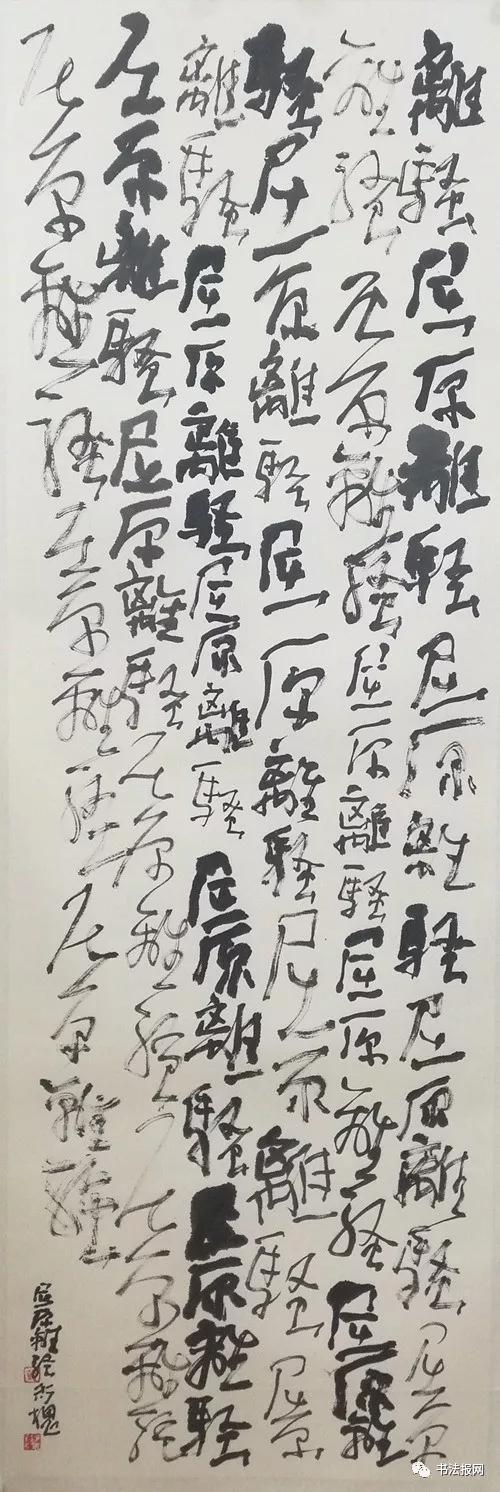 離騷屈原離騷屈原離騷屈原離騷屈原
離騷屈原離騷屈原離騷屈原離騷屈原離
騷屈原離騷屈原離騷屈原離騷屈原
離騷屈原離騷屈原離騷屈原離騷屈原離騷
屈原離騷屈原離騷屈原離騷屈原離騷
屈原離騷屈原離騷屈原離騷
屈原離騷
书法报网